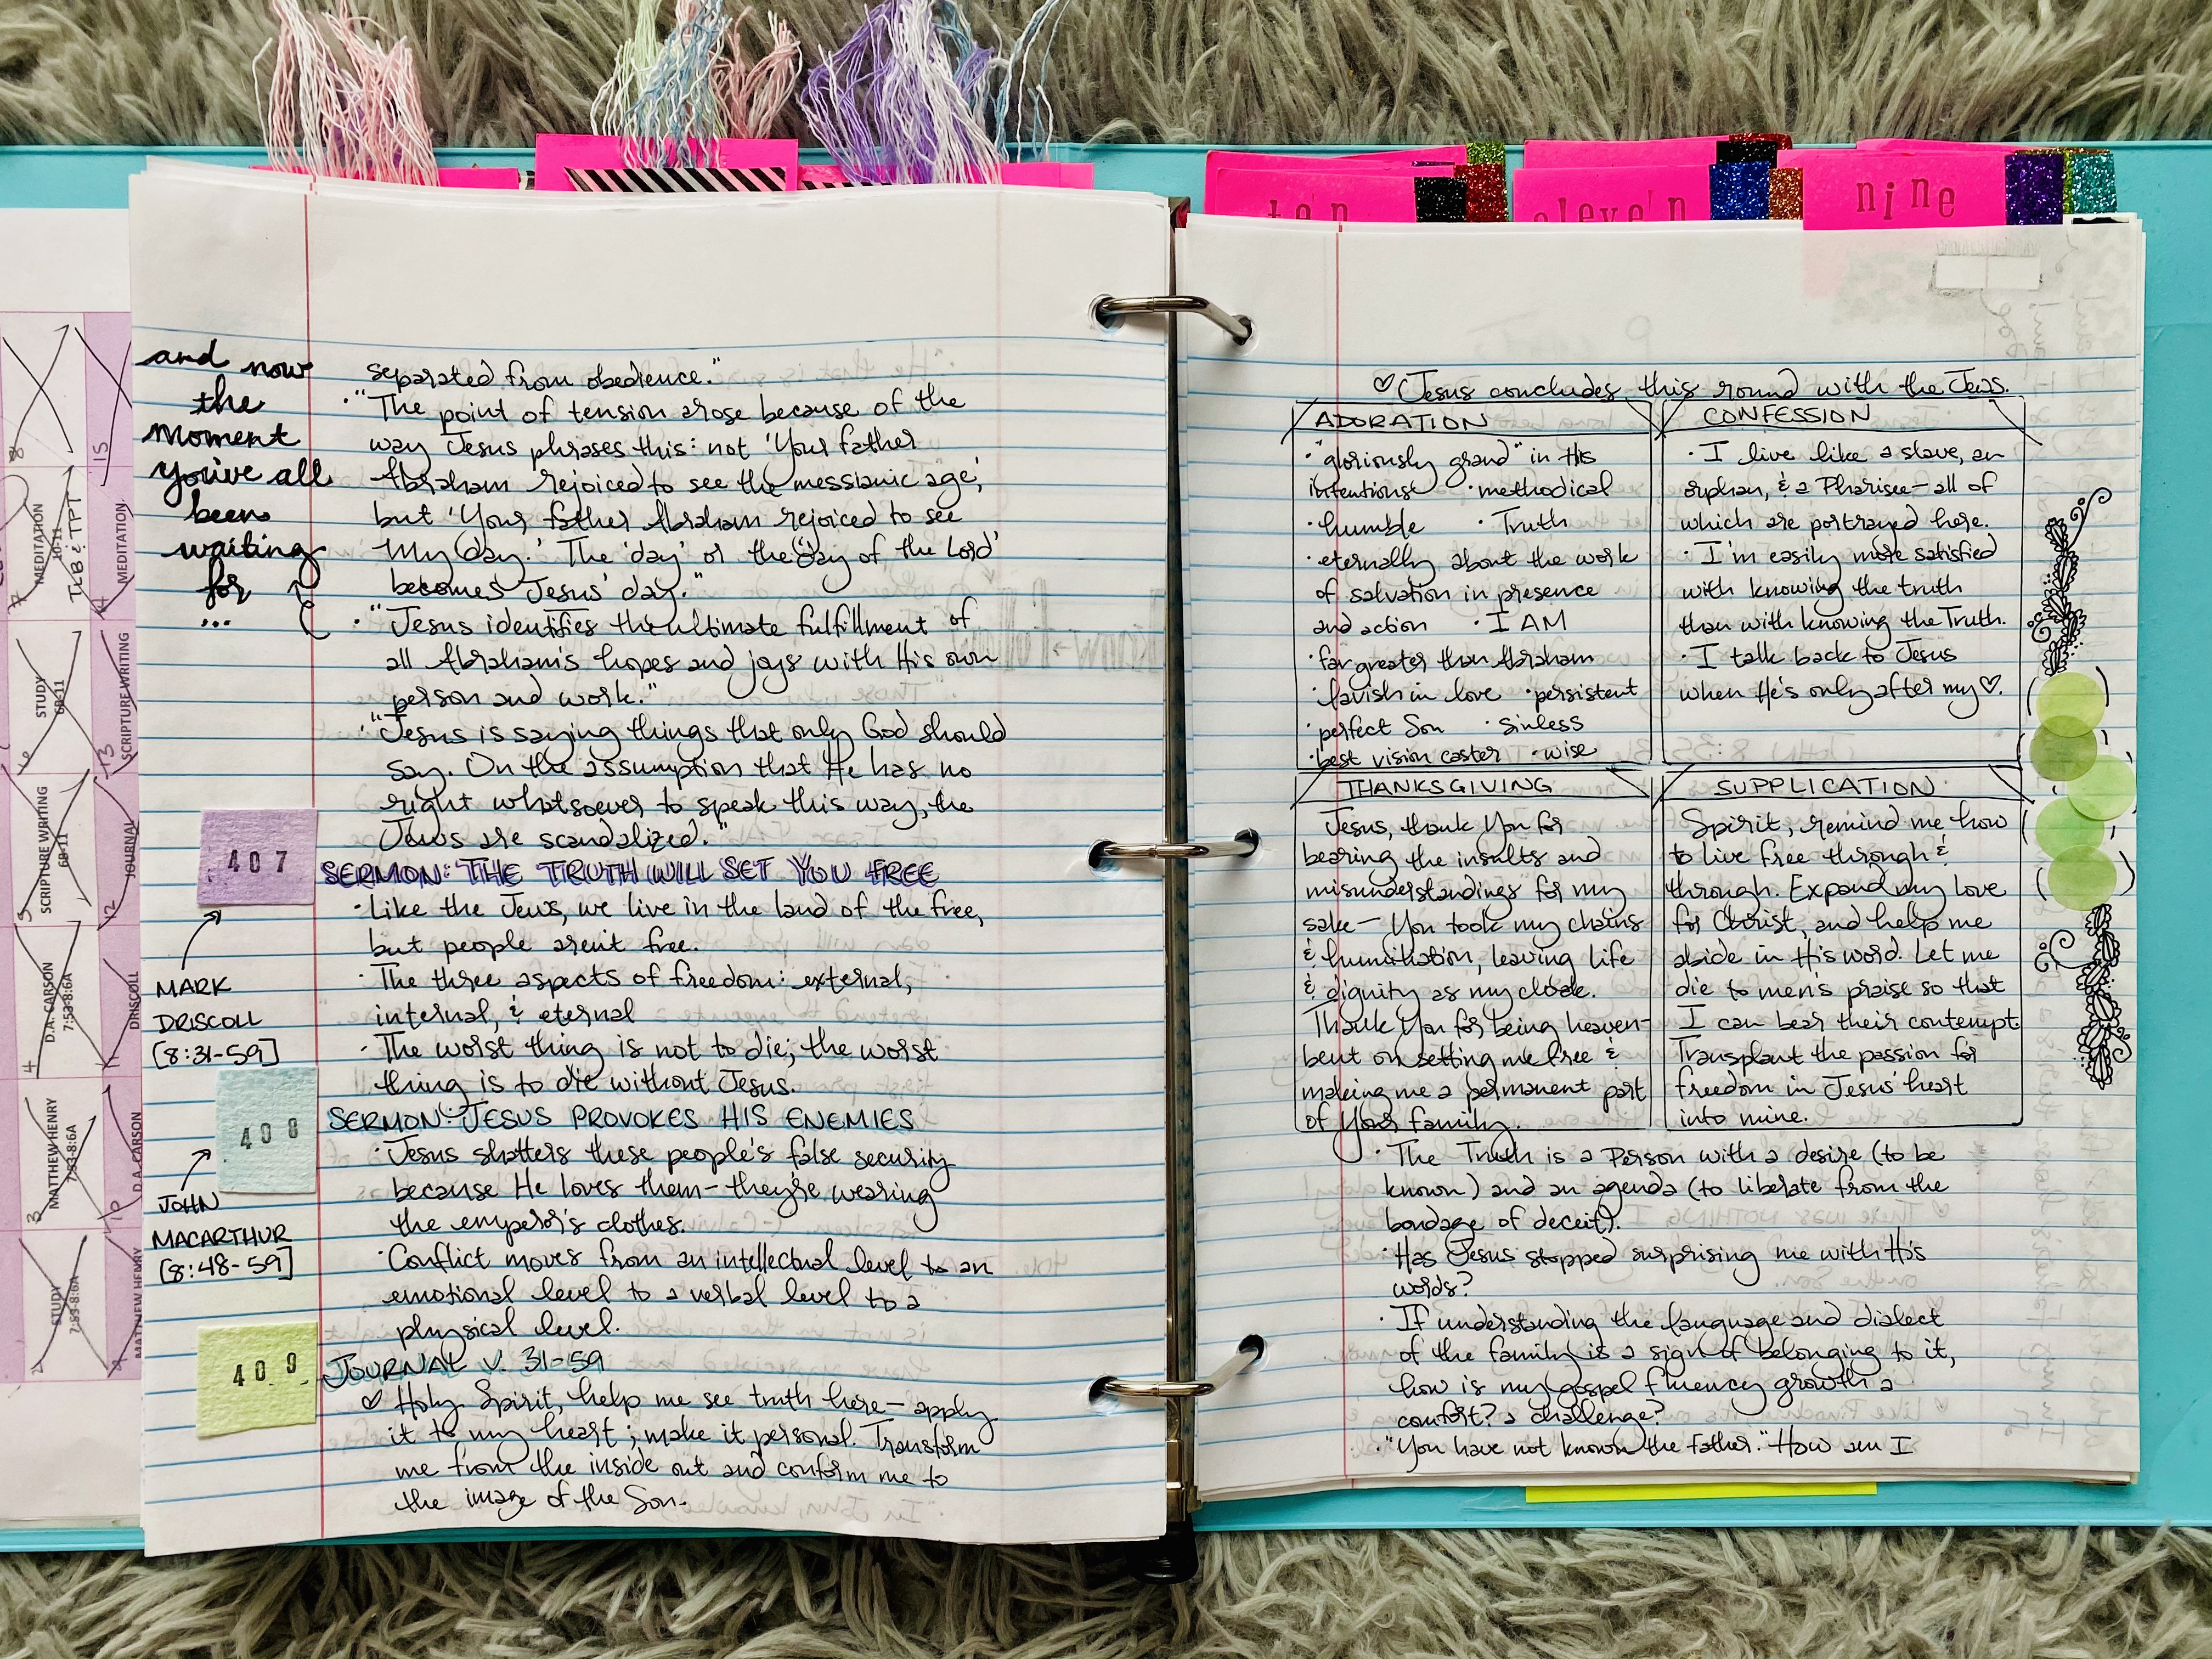 ten
eleven
nine
and now
the
moment
you've all
been
waiting
for
...
separated from obedience."
· "The point of tension arose because of the
way Jesus phrases this: not 'Your father
Abraham rejoiced to see the messianic age,'
but 'Your father Abraham rejoiced to see
My day.' The 'day' or the 'day of the Lord'
becomes Jesus' day."
· "Jesus identifies the ultimate fulfillment of
all Abraham's hopes and joys with His own
person and work."
· "Jesus is saying things that only God should
say. On the assumption that He has no
right whatsoever to speak this way, the
Jews are scandalized."
407
SERMON: THE TRUTH WILL SET YOU FREE
· Like the Jews, we live in the land of the free,
but people aren't free.
· The three aspects of freedom: external,
internal, & eternal
· The worst thing is not to die; the worst
thing is to die without Jesus.
MARK
DRISCOLL
[8:31-59]
408
SERMON: JESUS PROVOKES HIS ENEMIES
· Jesus shatters these people's false security
because He loves them - they're wearing
the emperor's clothes.
· Conflict moves from an intellectual level to an
emotional level to a verbal level to a
physical level.
JOHN
MACARTHUR
[8:48-59]
409
JOURNAL V. 31-59
♡ Holy Spirit, help me see truth here - apply
it to my heart; make it personal. Transform
me from the inside out and conform me to
the image of the Son.
8
15
MEDITATION
60-11
TLB & TPT
7
14
MEDITATION
STUDY
60-11
6
13
SCRIPTURE WRITING
SCRIPTURE WRITING
60-11
5
12
JOURNAL
D.A. CARSON
7:53-8:6A
4
11
DRISCOLL
MATTHEW HENRY
7:53-8:6A
3
10
D.A. CARSON
STUDY
7:53-8:6A
2
9
MATTHEW HENRY
♡ (Jesus concludes this round with the Jews.
ADORATION
· "gloriously grand" in His
intentions · methodical
· humble · Truth
· eternally about the work
of salvation in presence
and action · I AM
· far greater than Abraham
· lavish in love · persistent
· perfect Son · sinless
· best vision caster · wise
CONFESSION
· I live like a slave, an
orphan, & a Pharisee - all of
which are portrayed here.
· I'm easily more satisfied
with knowing the truth
than with knowing the Truth.
· I talk back to Jesus
when He's only after my ♡.
THANKSGIVING
Jesus, thank You for
bearing the insults and
misunderstandings for my
sake - You took my chains
& humiliation, leaving life
& dignity as my cloak.
Thank You for being heaven-
bent on setting me free &
making me a permanent part
of Your family.
SUPPLICATION
Spirit, remind me how
to live free through &
through. Expand my love
for Christ, and help me
abide in His word. Let me
die to men's praise so that
I can bear their contempt.
Transplant the passion for
freedom in Jesus' heart
into mine.
· The Truth is a Person with a desire (to be
known) and an agenda (to liberate from the
bondage of deceit).
· Has Jesus stopped surprising me with His
words?
· If understanding the language and dialect
of the family is a sign of belonging to it,
how is my gospel fluency growth a
comfort? a challenge?
· "You have not known the Father." How am I